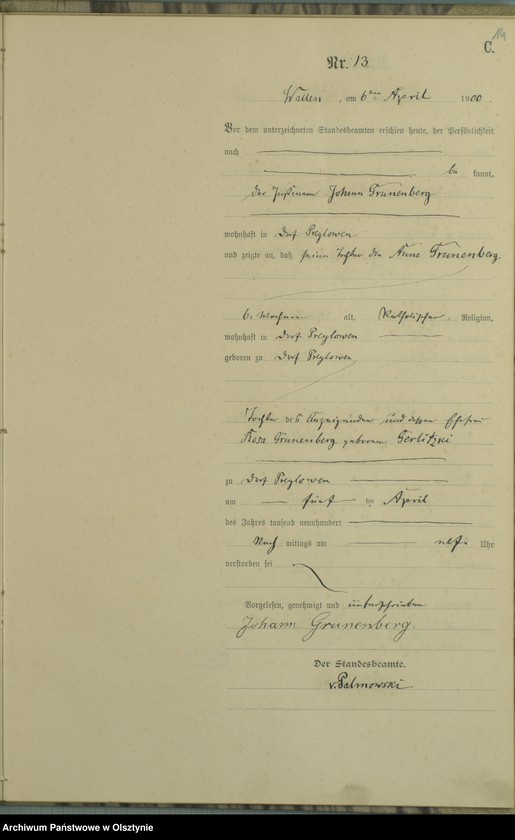 14
C.
Nr. 13
Wallen, am 6ten April 1900.
Vor dem unterzeichneten Standesbeamten erschien heute, der Persönlichkeit
nach
be kannt,
der Johann Grunenberg
wohnhaft in Dorf Preylowen
und zeigte an, daß seine Tochter die Anna Grunenberg
6. Wochen alt, Katholischer Religion,
wohnhaft in Dorf Preylowen
geboren zu Dorf Preylowen
Tochter des Anzeigenden und dessen Ehefrau
Rosa Grunenberg geborene Gerlitzki
zu Dorf Preylowen
am fünf ten April
des Jahres tausend neunhundert
Nach mittags um elf Uhr
verstorben sei
Vorgelesen, genehmigt und unterschrieben
Johann Grunenberg.
Der Standesbeamte.
v. Palmowski
Archiwum Państwowe w Olsztynie